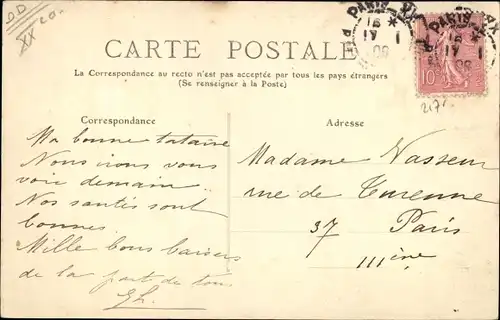 CARTE POSTALE
La Correspondance au recto n'est pas acceptée par tous les pays étrangers
(Se renseigner à la Poste)
Correspondance
Ma bonne tataine
Nous irons vous
voir demain..
Nos santés sont
bonnes.
Mille bons baisers
de la part de tous
Adresse
Madame Vasseur
rue de Turenne
37 Paris
IIIème
PARIS
10
217
XX